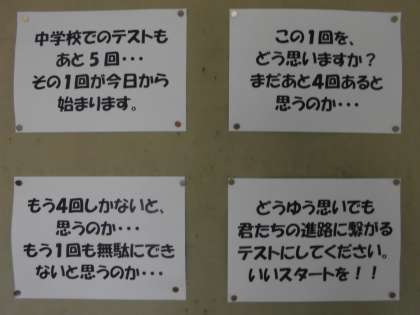 中学校でのテストも
あと5回・・・
その1回が今日から
始まります。
この1回を、
どう思いますか？
まだあと4回あると
思うのか・・・
もう4回しかないと、
思うのか・・・
もう1回も無駄にでき
ないと思うのか・・・
どうゆう思いでも
君たちの進路に繋がる
テストにしてください。
いいスタートを！！